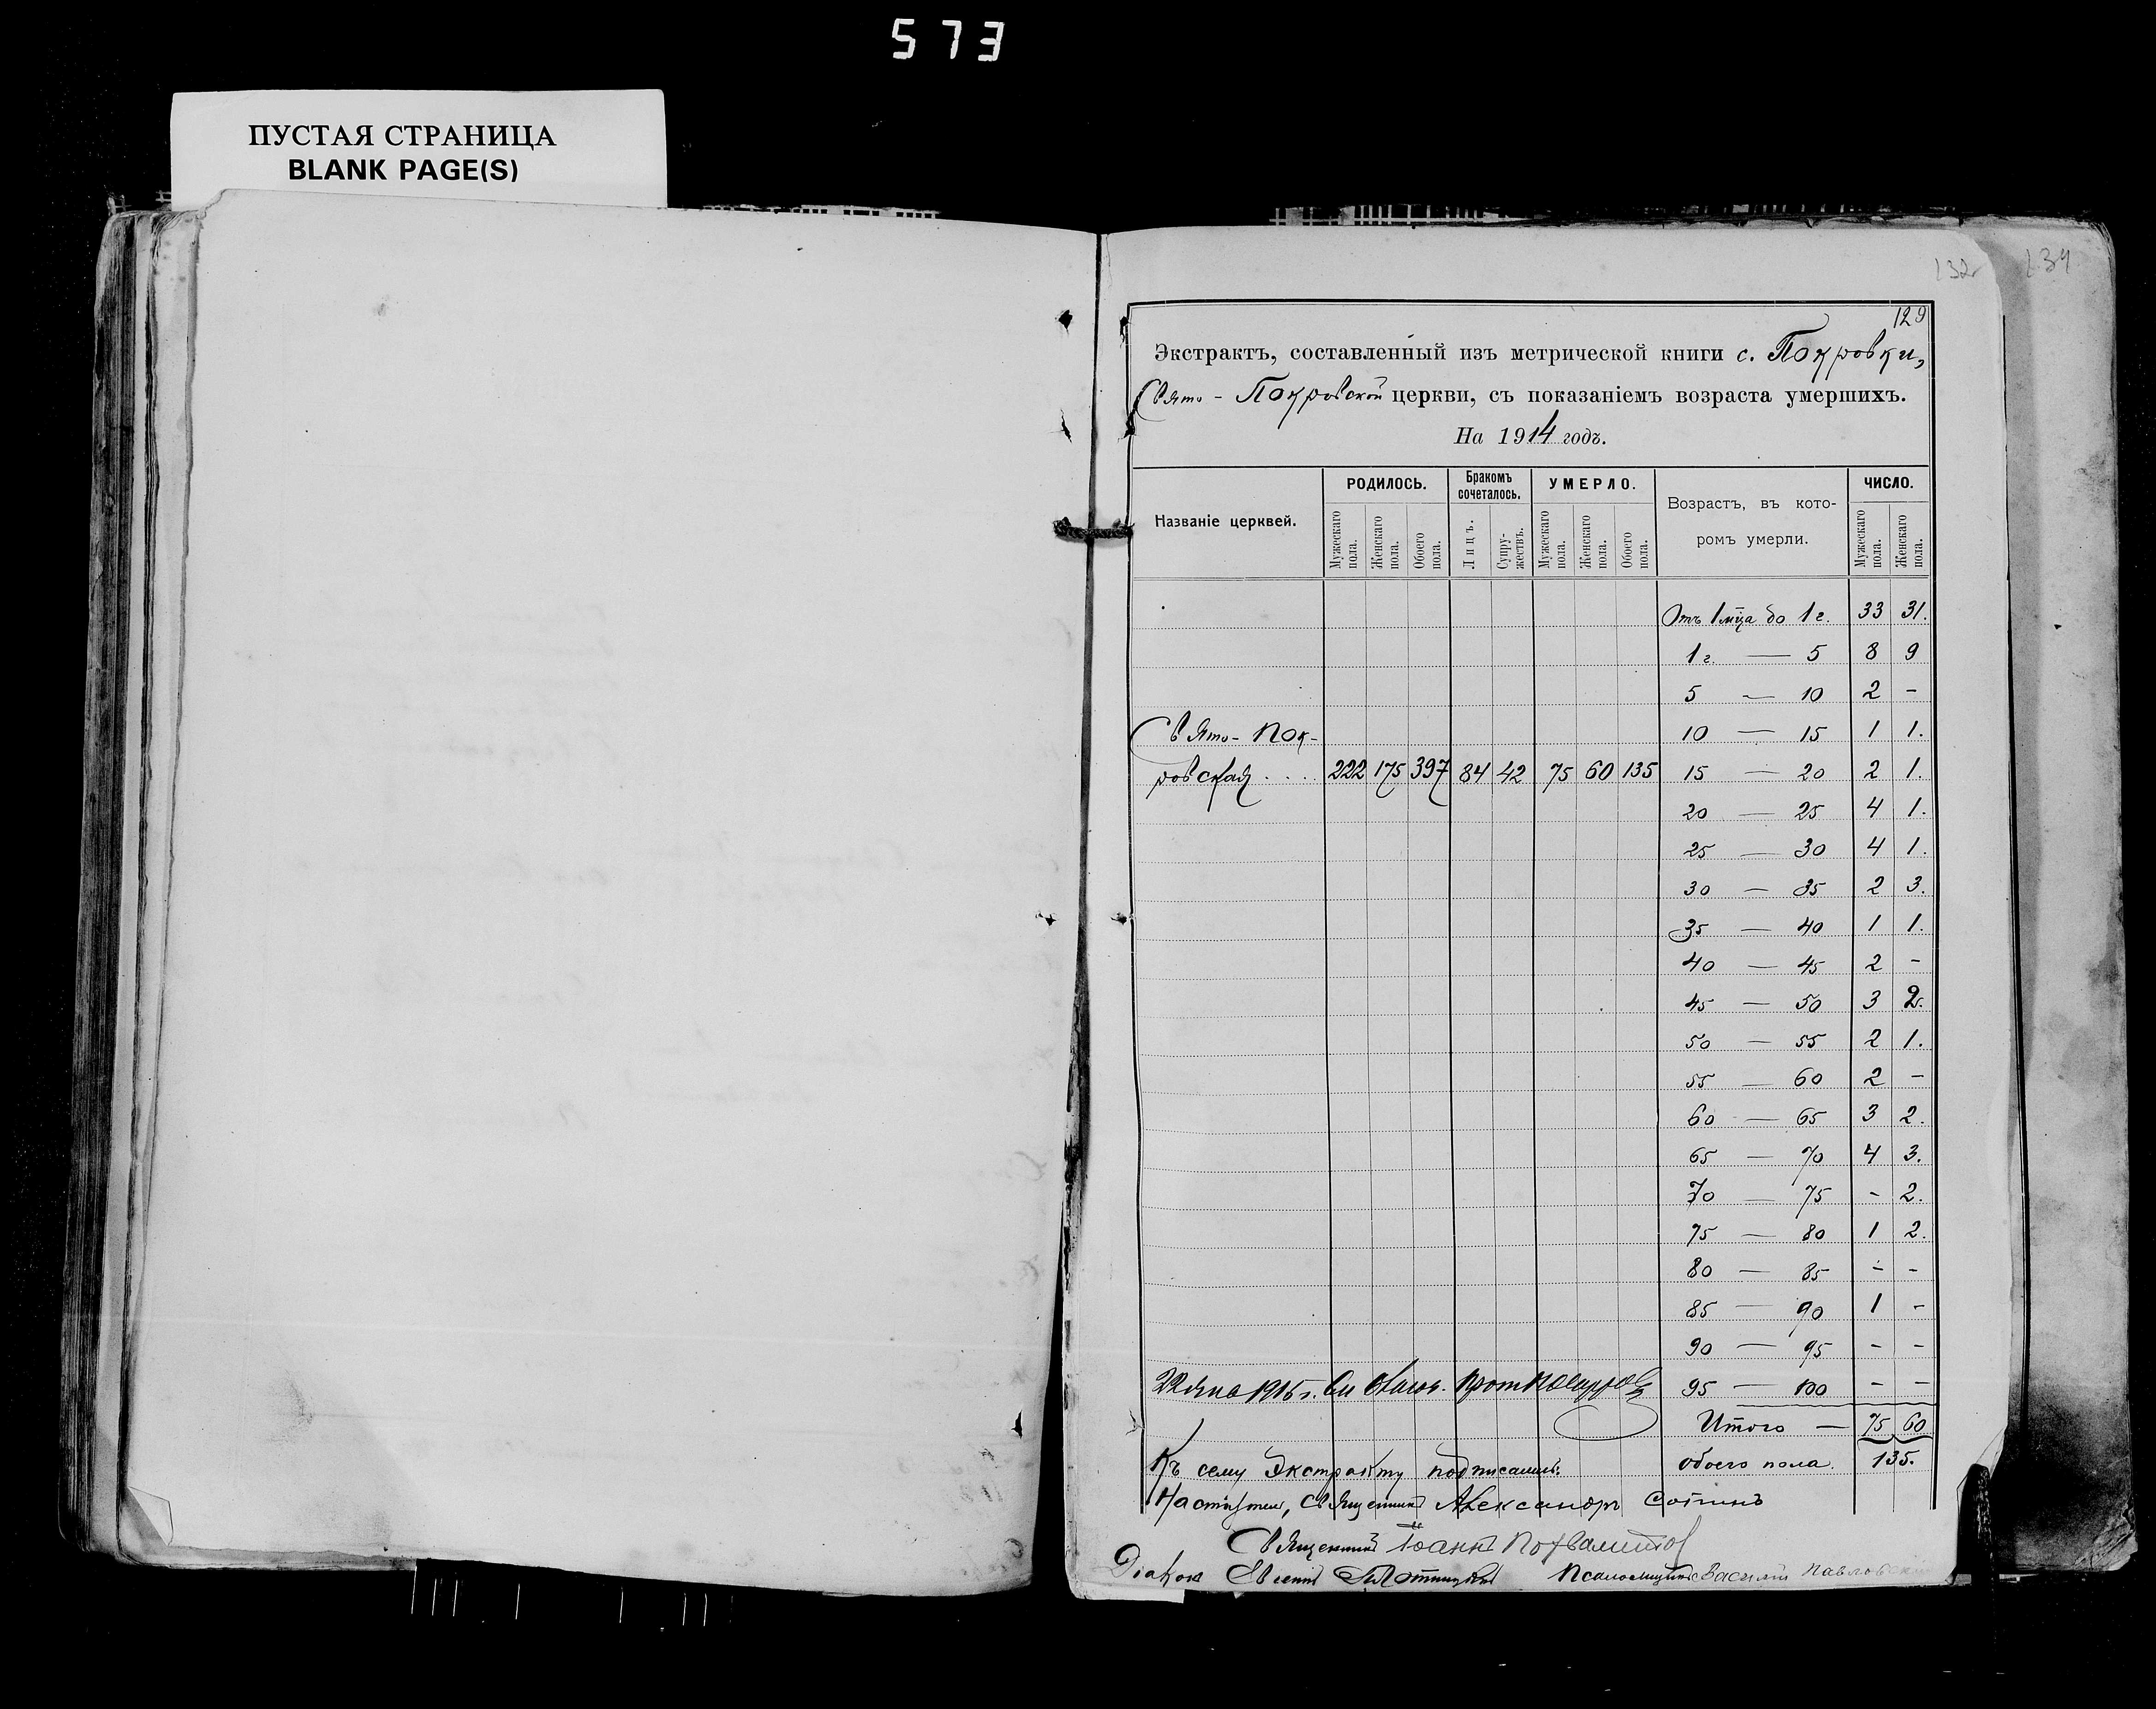 573
ПУСТАЯ СТРАНИЦА
BLANK PAGE(S)
132
134
129
Экстрактъ, составленный изъ метрической книги с. Покровки,
Свято-Покровской церкви, съ показаніемъ возраста умершихъ.
На 1914 годъ.
Названіе церквей.
РОДИЛОСЬ.
Мужескаго пола.
Женскаго пола.
Обоего пола.
Бракомъ сочеталось.
Лицъ.
Супру-жествъ.
УМЕРЛО.
Мужескаго пола.
Женскаго пола.
Обоего пола.
Возрастъ, въ кото-
ромъ умерли.
ЧИСЛО.
Мужескаго пола.
Женскаго пола.
Отъ 1 мца до 1 г. 33 31.
1 г. — 5 8 9
5 — 10 2 -
Свято-Пок- 10 — 15 1 1.
ровская 222 175 397 84 42 75 60 135 15 — 20 2 1.
20 — 25 4 1.
25 — 30 4 1.
30 — 35 2 3.
35 — 40 1 1.
40 — 45 2 -
45 — 50 3 2.
50 — 55 2 1.
55 — 60 2 -
60 — 65 3 2.
65 — 70 4 3.
70 — 75 - 2.
75 — 80 1 2.
80 — 85 - -
85 — 90 1 -
90 — 95 - -
1915 г. 95 — 100 - -
Итого — 75 60
Къ сему экстракту подписались: обоего пола. 135.
Настоятель, Священникъ Александръ Сотинъ
Священникъ Іоаннъ Похвалитов
Діаконъ Евгеній Псаломщикъ Василій Павловскій